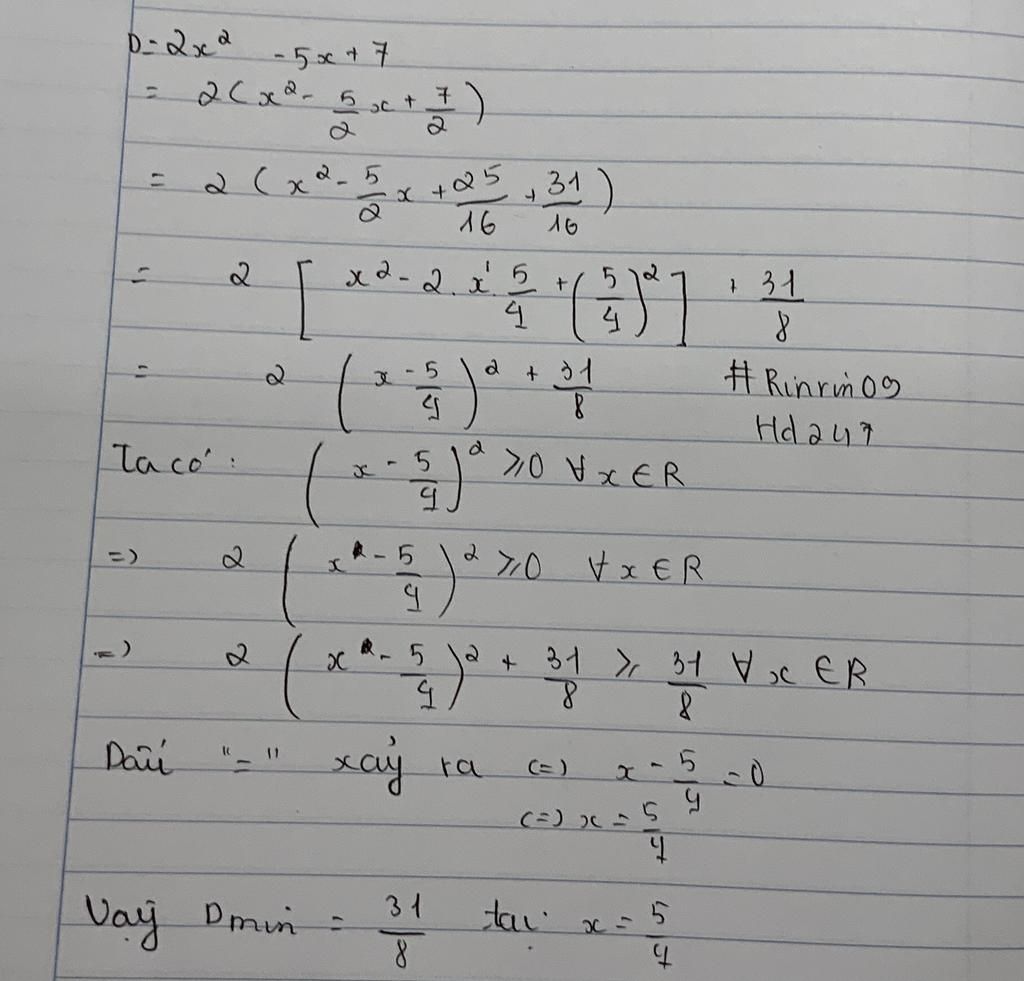 D = 2x² - 5x + 7
= 2(x² - 5/2 x + 7/2)
= 2(x² - 5/2 x + 25/16 + 31/16)
= 2[x² - 2.x.5/4 + (5/4)²] + 31/8
= 2(x - 5/4)² + 31/8 #Rinrin09
Hd247
Ta có: (x - 5/4)² ≥ 0 ∀x ∈ R
=> 2(x - 5/4)² ≥ 0 ∀x ∈ R
=> 2(x - 5/4)² + 31/8 ≥ 31/8 ∀x ∈ R
Dấu "=" xảy ra <=> x - 5/4 = 0
<=> x = 5/4
Vậy Dmin = 31/8 tại x = 5/4